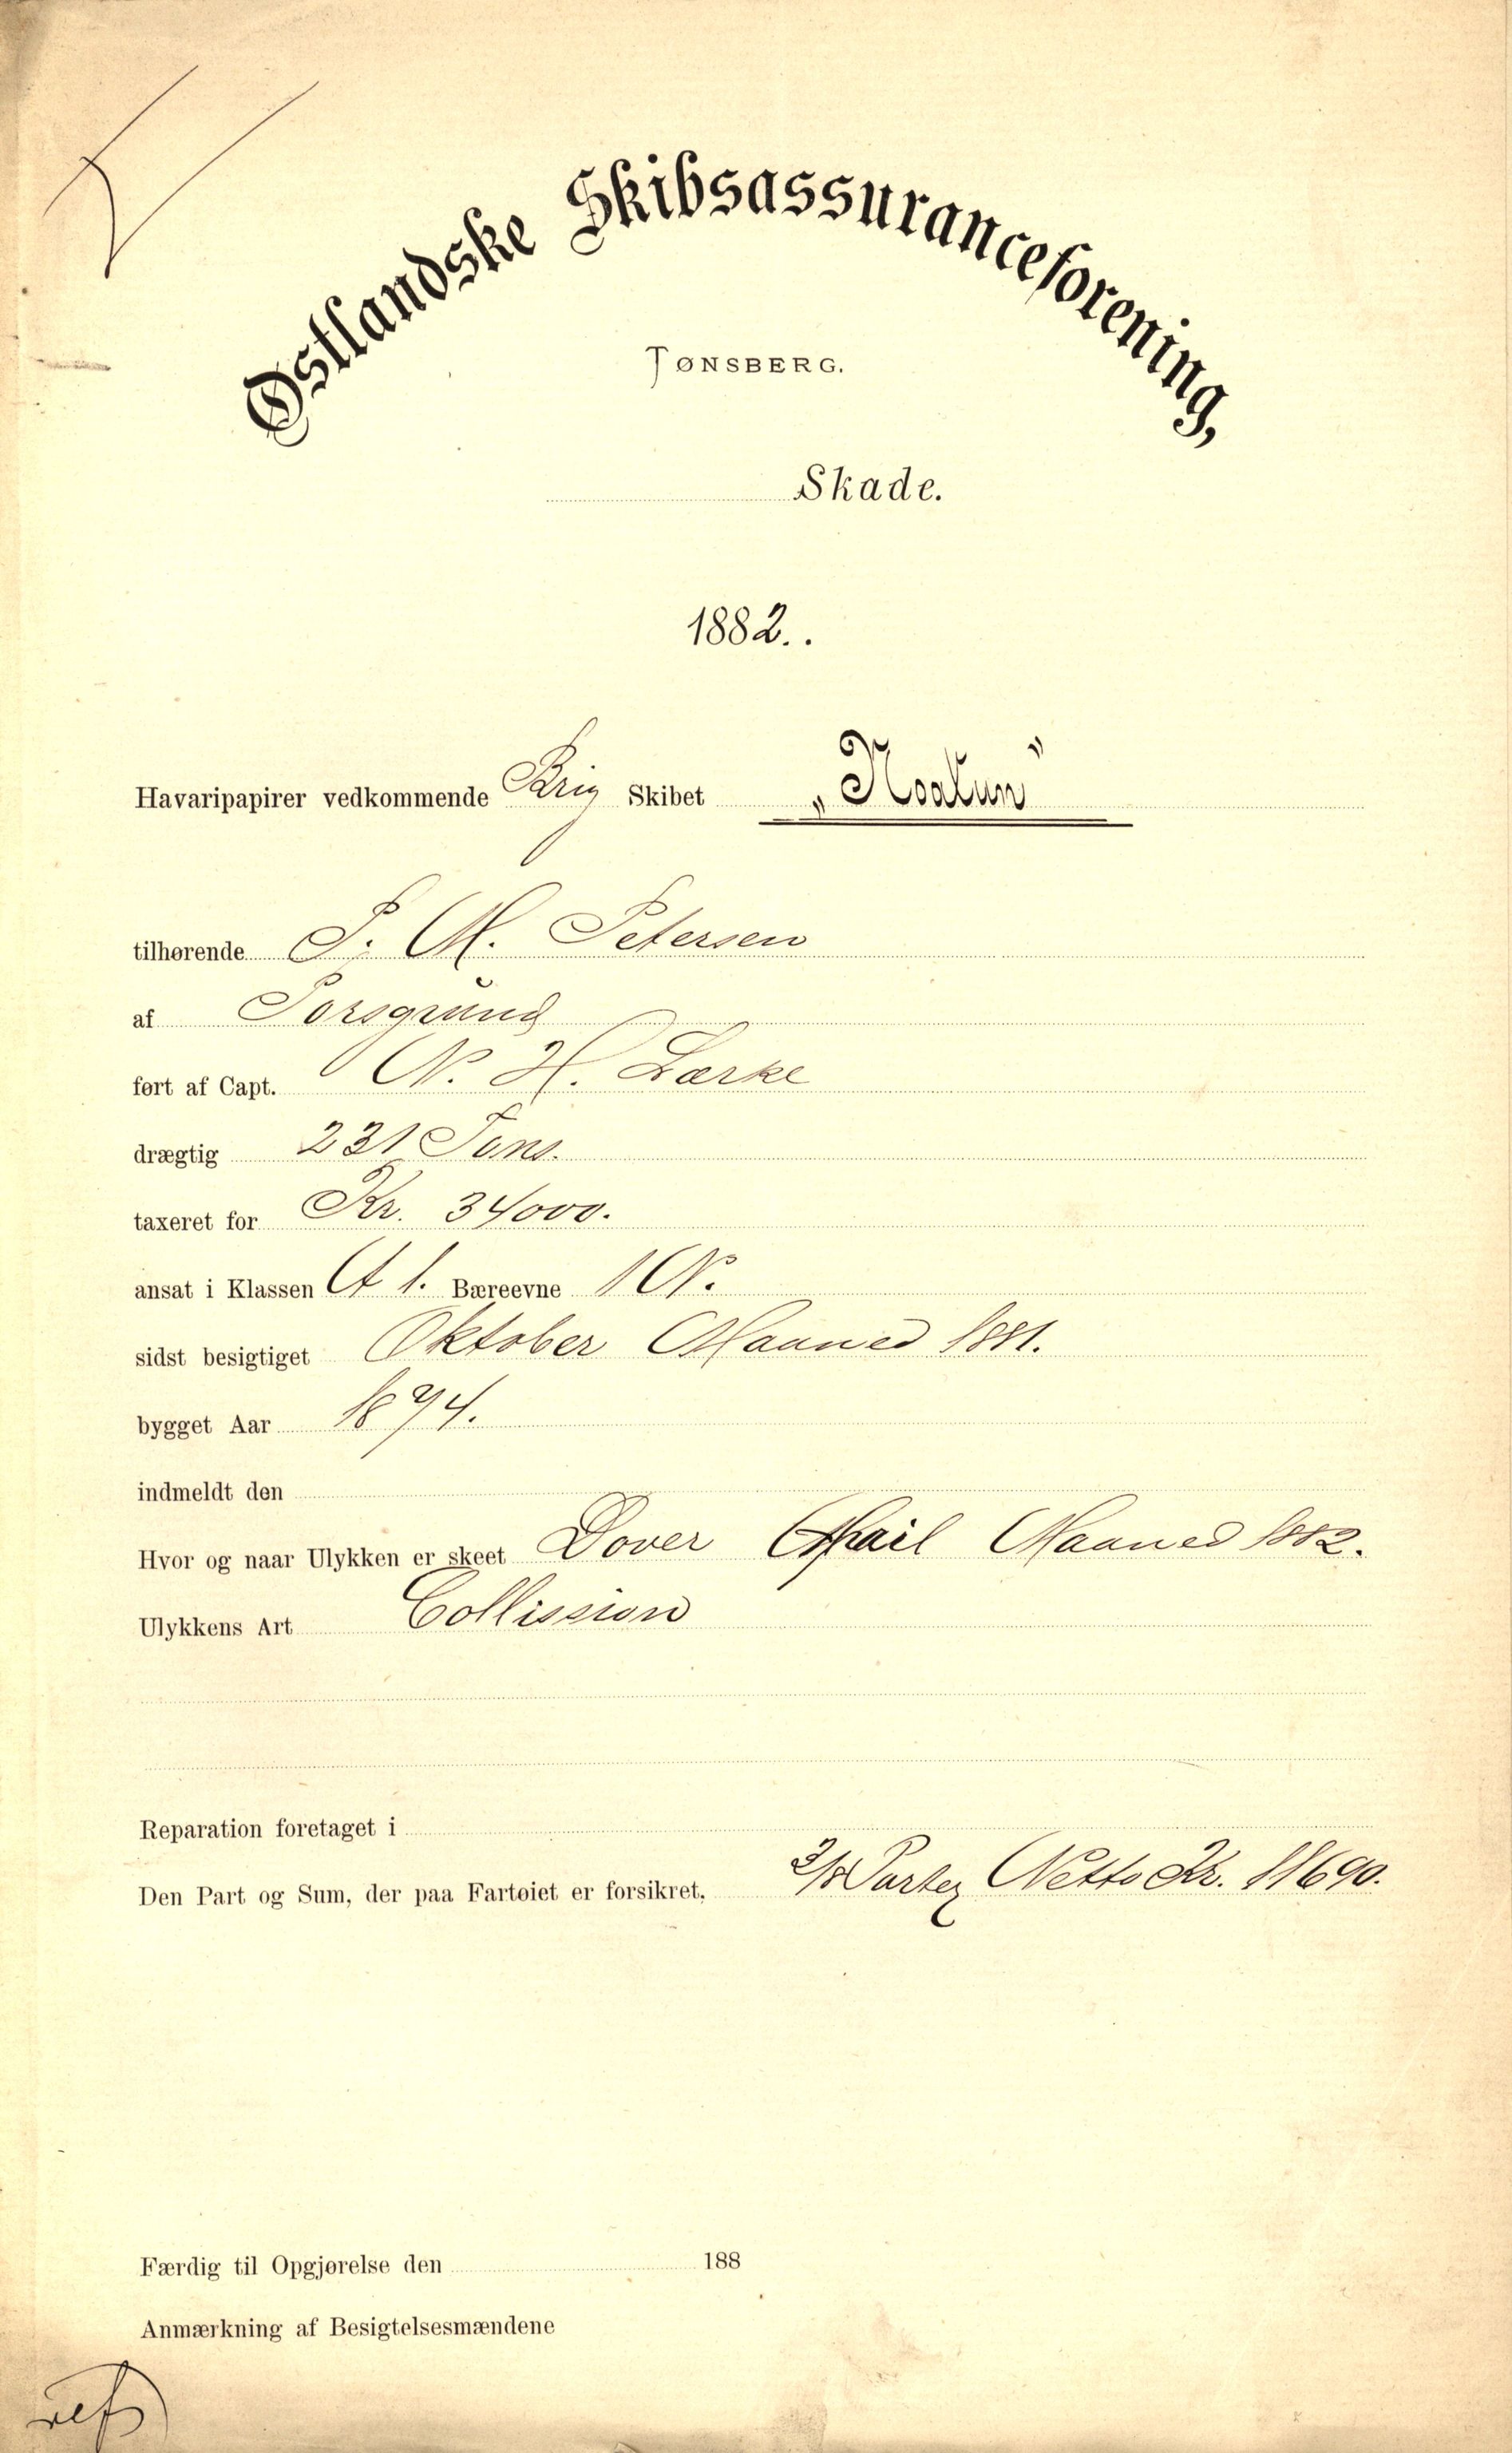 Østlandske Skibsassuranceforening,
TØNSBERG.
Skade.
1882..
Havaripapirer vedkommende Brig Skibet „Noatun”
tilhørende P. M. Petersen
af Porsgrund
ført af Capt. N. H. Lærke
drægtig 231 Tons.
taxeret for Kr. 34000.
ansat i Klassen A 1. Bæreevne 1 N.
sidst besigtiget Oktober Maaned 1881.
bygget Aar 1874.
indmeldt den
Hvor og naar Ulykken er skeet Dover April Maaned 1882.
Ulykkens Art Collission
Reparation foretaget i
Den Part og Sum, der paa Fartøiet er forsikret, 3/8 Parter Netto Kr. 11690.
Færdig til Opgjørelse den 188
Anmærkning af Besigtelsesmændene